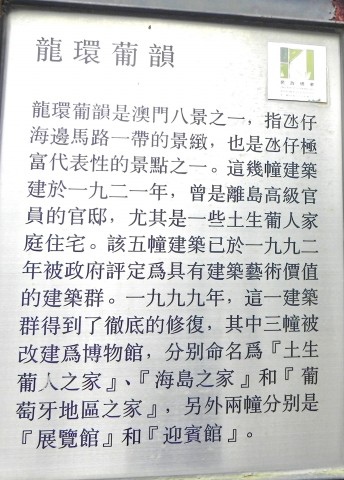 龍環葡韻
龍環葡韻是澳門八景之一，指氹仔
海邊馬路一帶的景緻，也是氹仔極
富代表性的景點之一。這幾幢建築
建於一九二一年，曾是離島高級官
員的官邸，尤其是一些土生葡人家
庭住宅。該五幢建築已於一九九二
年被政府評定爲具有建築藝術價值
的建築群。一九九九年，這一建築
群得到了徹底的修復，其中三幢被
改建爲博物館，分别命名爲『土生
葡人之家』、『海島之家』和『葡
萄牙地區之家』，另外兩幢分别是
『展覽館』和『迎賓館』。